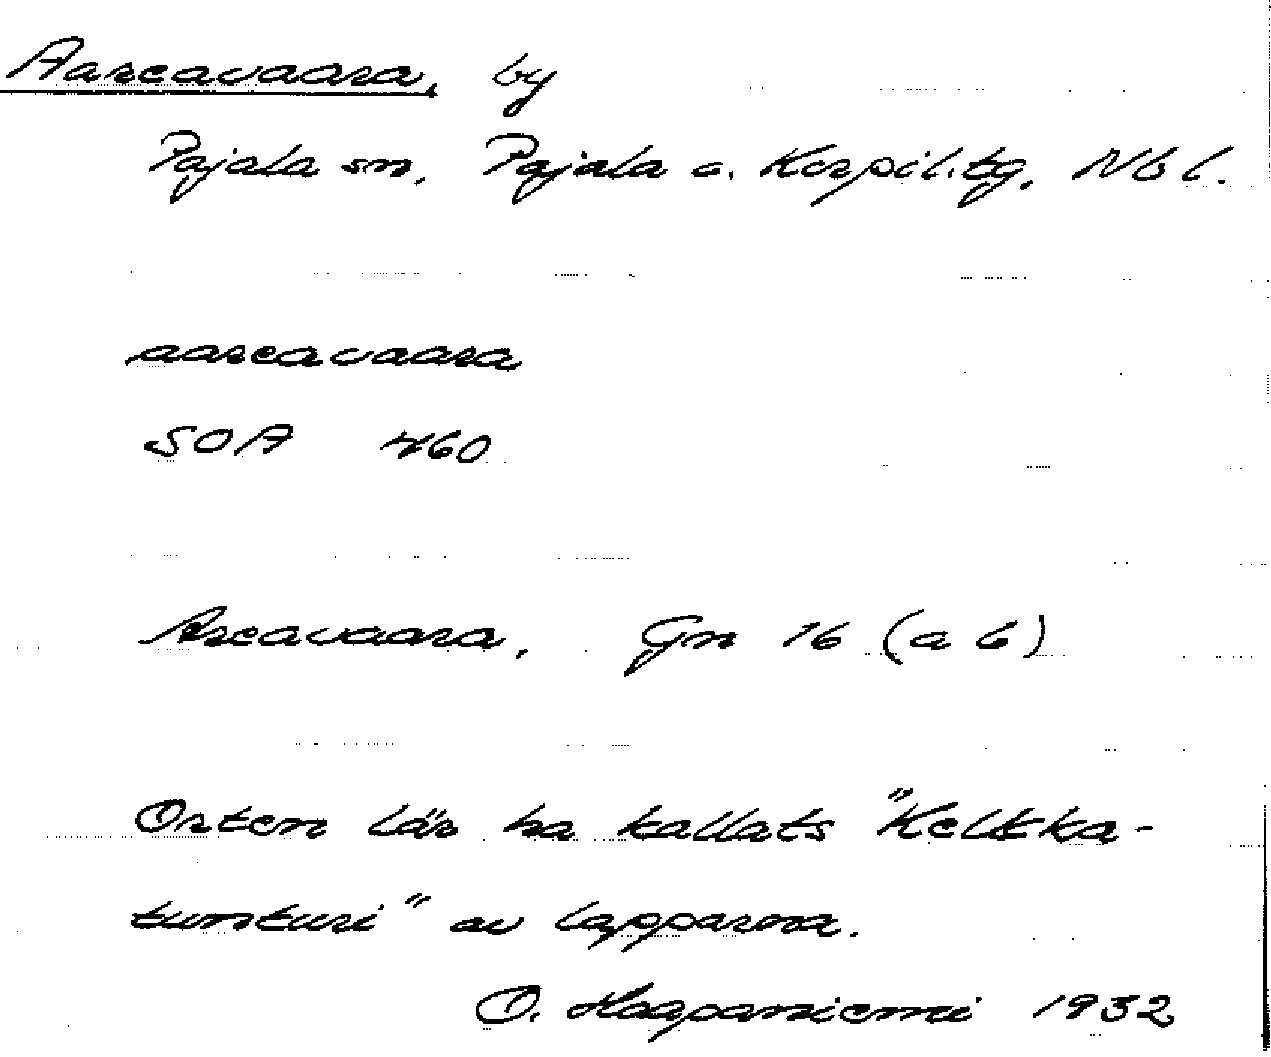 Aareavaara, by
Pajala sn, Pajala o. Korpil.tg. Nb l.
aareavaara
SOA 460
Areavaara, Gn 16 (a b)
Orten lär ha kallats "Kelkka-
tunturi" av lapparna.
O. Haapaniemi 1932